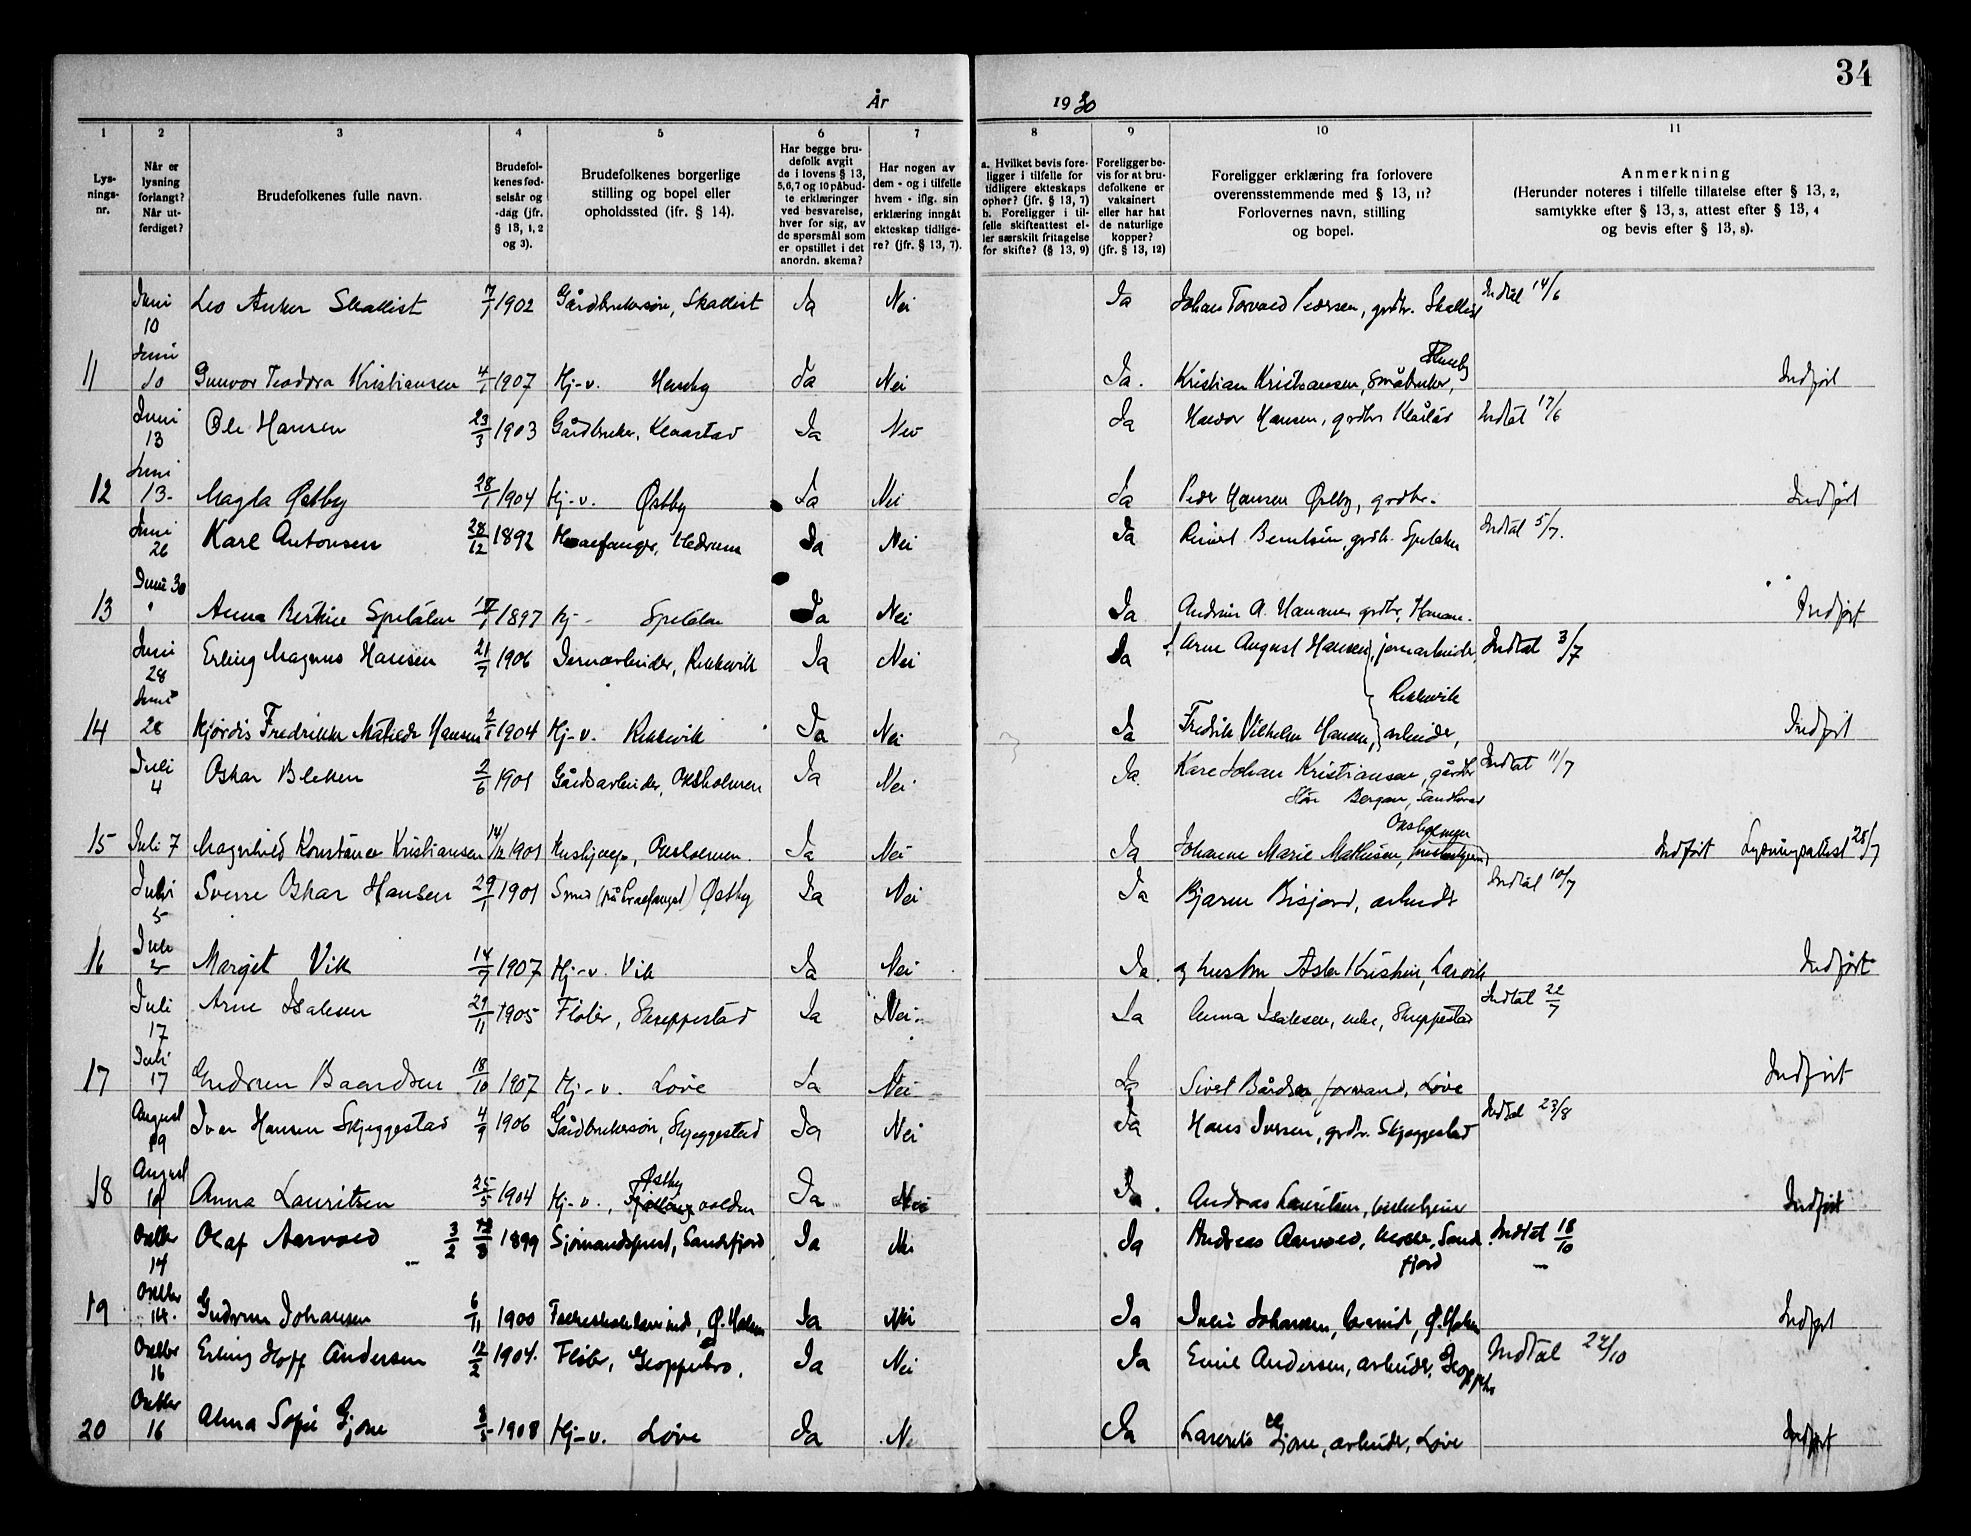 34
År 1930
1 2 3 4 5 6 7 8 9 10 11
Lys-
nings-
nr.
Når er
lysning
forlangt?
Når ut-
ferdiget?
Brudefolkenes fulle navn.
Brudefol-
kenes fød-
selsår og
-dag (jfr.
§ 13, 1, 2
og 3).
Brudefolkenes borgerlige
stilling og bopel eller
opholdssted (ifr. § 14).
Har begge bru-
defolk avgit
de i lovens § 13,
5,6,7 og 10 påbud-
te erklæringer
ved besvarelse,
hver for sig, av
de spørsmål som
er opstillet i det
anordn. skema?
Har nogen av
dem - og i tilfelle
hvem - iflg. sin
erklæring inngåt
ekteskap tidlige-
re? (jfr. § 13, 7).
a. Hvilket bevis fore-
ligger i tilfelle for
tidligere ekteskaps
ophør? (jfr. § 13, 7)
b. Foreligger i til-
felle skifteattest el-
ler særskilt fritagelse
for skifte? (§ 13, 9)
Foreligger be-
vis for at bru-
defolkene er
vaksinert
eller har hat
de naturlige
kopper?
(jfr. § 13, 12)
Foreligger erklæring fra forlovere
overensstemmende med § 13, 11?
Forlovernes navn, stilling
og bopel.
Anmerkning
(Herunder noteres i tilfelle tillatelse efter § 13, 2,
samtykke efter § 13, 3, attest efter § 13, 4
og bevis efter § 13, 8).
Juni 10 Leo Anker Skallist 7/7 1902 Gårdbrukersøn, Skallist Ja Nei Ja Johan Torvald Pedersen, grdbr. Skallist Indtal 14/6
11 Juni 10 Gunvor Teodora Kristiansen 4/1 1907 Hj-v. Ja Nei Ja. Kristian Kristiansen, Småbruker, Indført
Juni 13 Ole Hansen 23/3 1903 Gårdbruker, Klaastad Ja Nei Ja Hansen, grdbr. Klåstad Indtal 17/6
12 Juni 13 Magda Østby 28/1 1904 Hj-v. Østby Ja Nei Ja Peder Hansen Østby, grdbr. Indført
Juni 26 Karl Antonsen 28/12 1892 Hvalfanger, Hedrum Ja Nei Ja Berntsen, grdbr. Indtal 5/7.
13 Juni 30 Anna 1897 Hj- Ja Nei Ja A. Hanane grdbr. Indført
Juni 28 Erling Magnus Hansen 21/7 1906 Jernarbeider, Rekkevik Ja Nei Ja Arne August Hansen, jernarbeider, Indtal 3/7
Rekkevik
14 Juni 28 Hjørdis Fredrikke Matilde Hansen 1904 Hj-v. Rekkevik Ja Nei Ja Fredrik Vilhelm Hansen, arbeider, Indført
Juli 4 Oskar Bleken 2/6 1901 Gårdsarbeider, Oksholmen Ja Nei Ja. Karl Johan Kristiansen, gårdbr. Indtal 11/7
Bergan, Sandherad
Oksholmen
15 Juli 7 Magnhild Konstance Kristiansen 14/12 1901 Hushjelp, Oksholmen. Ja Nei Ja Johanne Marie Mathisen, Indført Lysningsattest 28/7
Juli 5 Sverre Oskar Hansen 29/1 1901 Smed (på hvalfangst) Østby Ja Nei Ja Bjarne Bisjord, arbeider Indtal 10/7
16 Juli 5 Margit Vik 14/7 1907 Hj-v. Vik Ja Nei Ja. og hustru Asta Kristine, Larvik Indført
Juli 17 Arne Isaksen 29/11 1905 Fløter, Skreppestad Ja Nei Ja Anna Isaksen, enke, Skreppestad Indtal 22/7
17 Juli 17 Gudrun Baardsen 18/10 1907 Hj-v. Løve Ja Nei Ja Sivert Bårdsen, formand, Løve Indført
August 19 Ivar Hansen Skjeggestad 4/9 1906 Gårdbrukersøn, Skjeggestad Ja Nei Ja Hans Iversen, grdbr. Skjeggestad Indtal 23/8
Østby
18 August 19 Anna Lauritsen 25/5 1904 Hj-v., Ja Nei Ja. Andreas Lauritsen, Indført
Oktbr 14 Olaf Aarvold 3/2 1899 Sjømandsprest, Sandefjord Ja Nei Ja Andreas Aarvold, Sande- Indtal 18/10
fjord
19 Oktbr 14. Gudrun Johansen 6/11 1900 Folkeskolelærerinde, Ø. Halsen Ja Nei Ja Johansen, Ø. Halsen Indført
Oktbr 16 Erling Hoff Andersen 12/2 1904. Fløter, Gloppebro. Ja Nei Ja Emil Andersen, arbeider, Gloppebro Indtal 24/10
20 Oktbr 16 Alma Sofie Gjone 1908 Hj-v. Løve Ja Nei Ja Laurits Gjone, arbeider, Løve Indført